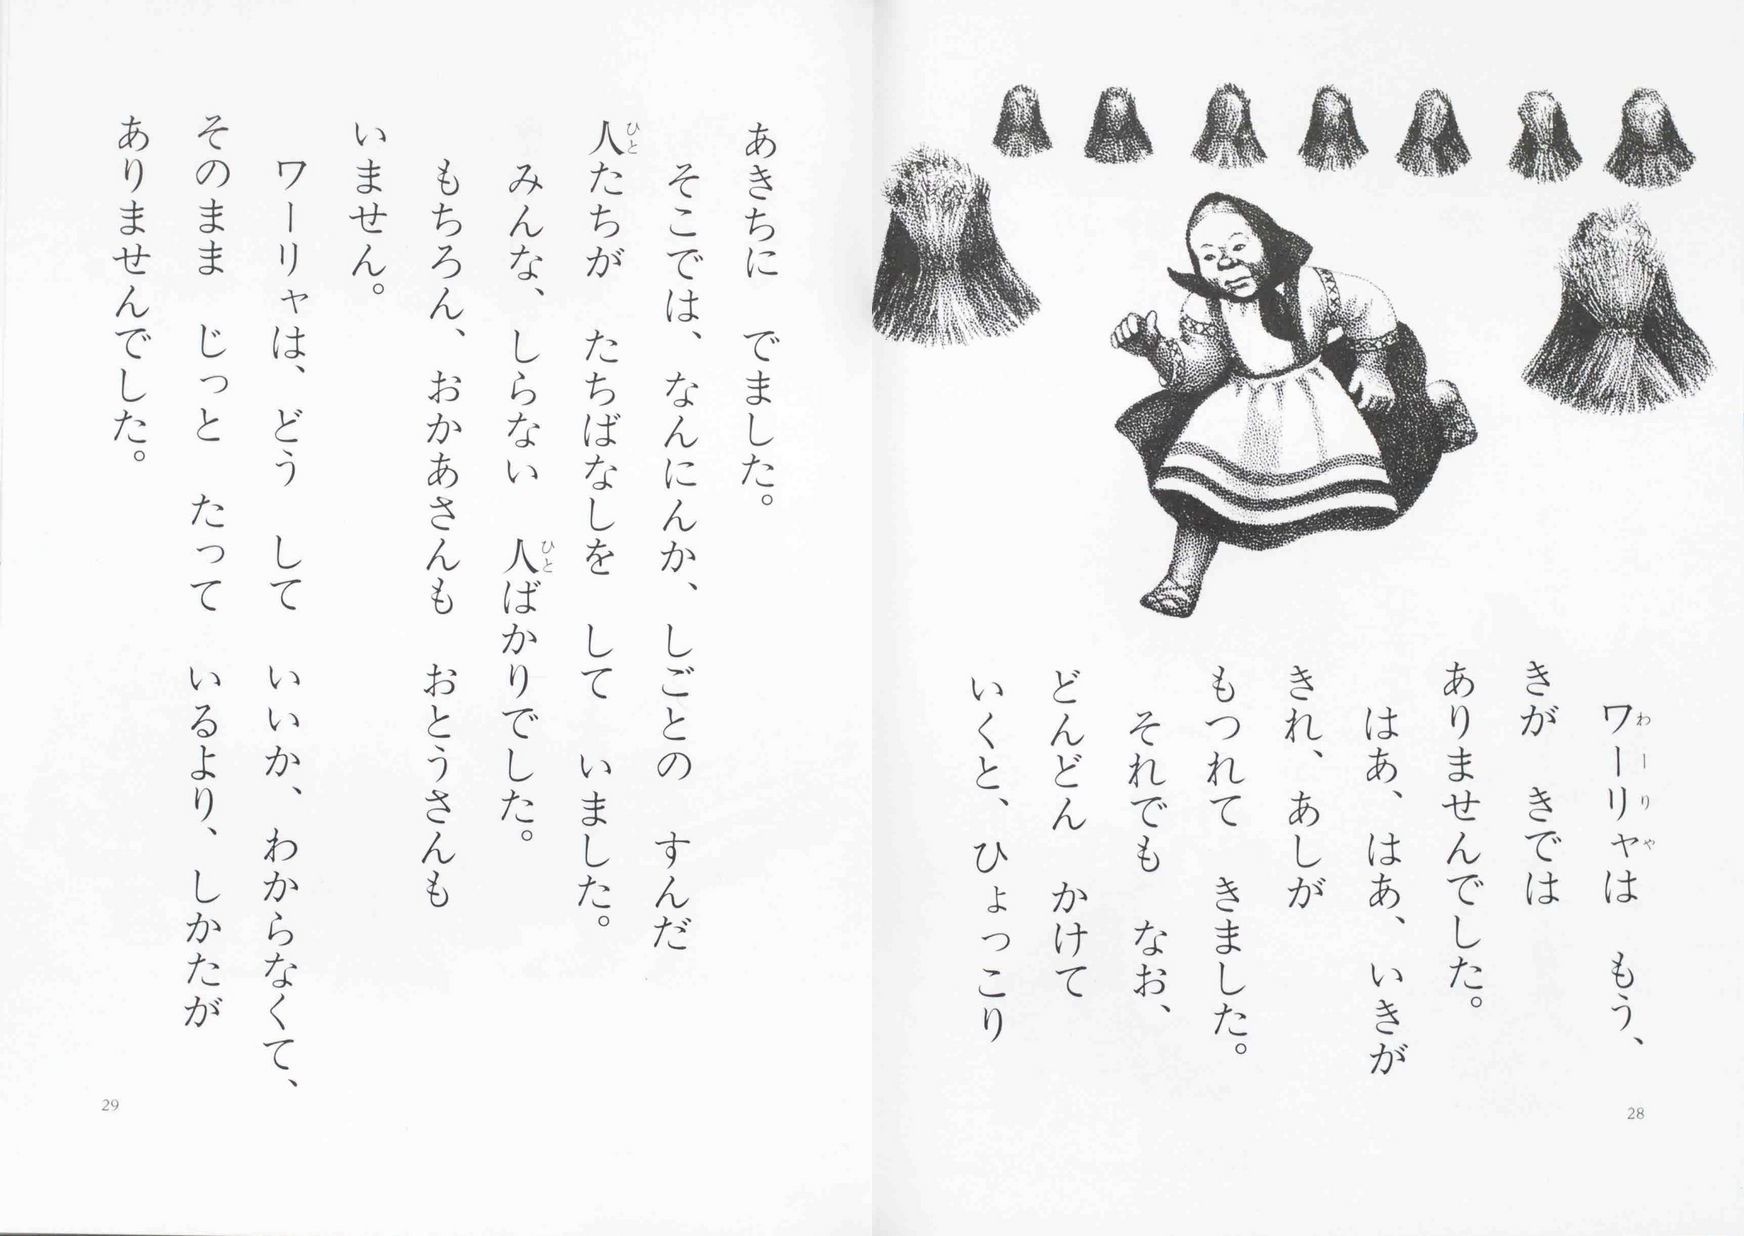 ワーリャは　もう、
きが　きでは
ありませんでした。
はあ、はあ、いきが
きれ、あしが
もつれて　きました。
それでも　なお、
どんどん　かけて
いくと、ひょっこり
28
あきちに　でました。
そこでは、なんにんか、しごとの　すんだ
人たちが　たちばなしを　して　いました。
みんな、しらない　人ばかりでした。
もちろん、おかあさんも　おとうさんも
いません。
ワーリャは、どう　して　いいか、わからなくて、
そのまま　じっと　たって　いるより、しかたが
ありませんでした。
29